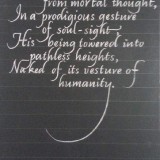 from mortal thought,
In a prodigious gesture
of soul-sight,
His being towered into
pathless heights,
Naked of its vesture of
humanity.